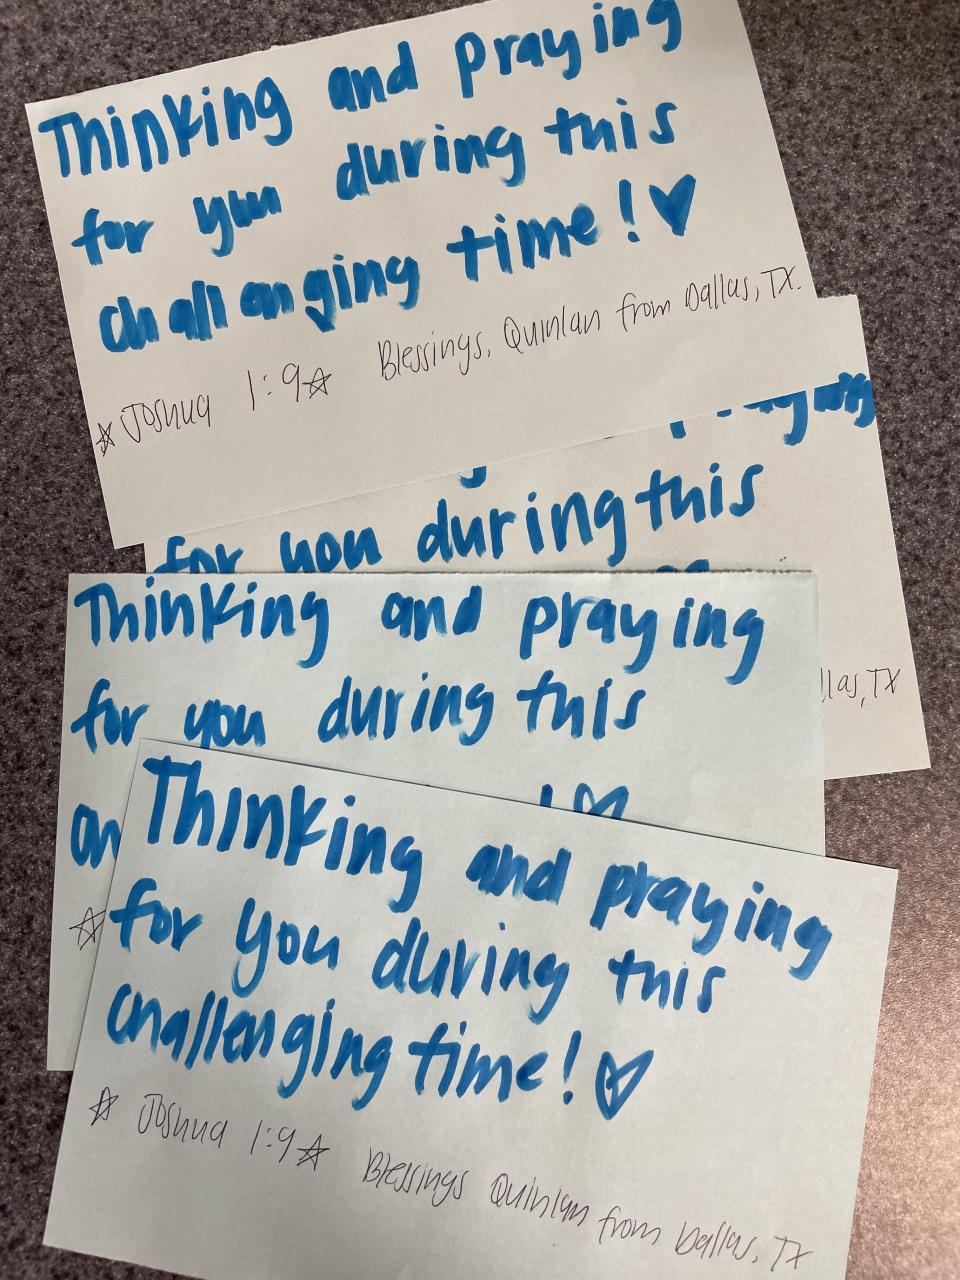 Thinking and praying
for you during this
challenging time! ♥
☆ Joshua 1:9 ☆ Blessings, Quinlan from Dallas, TX.
praying
for you during this
llas, TX
Thinking and praying
for you during this
! ♡
☆
Thinking and praying
for you during this
challenging time! ♡
☆ Joshua 1:9 ☆ Blessings Quinlan from Dallas, TX